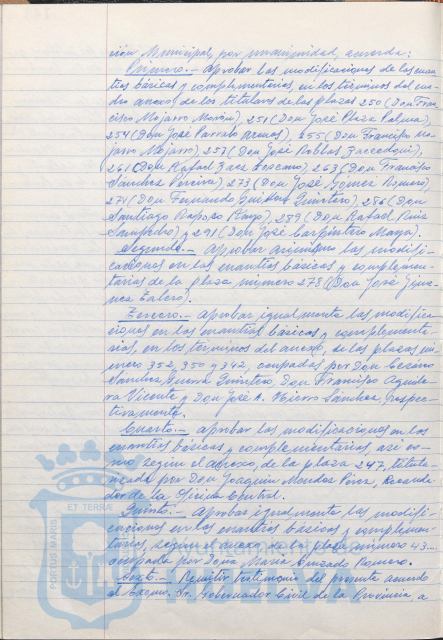 ción Municipal, por unanimidad, acuerda:
Primero.- Aprobar las modificaciones de las cuan
tías básicas y complementarias, en los términos del cua
dro anexo, de los titulares de las plazas 250 (Don Fran
cisco Mojarro Morón), 251 (Don José Plaza Palma),
254 (Don José Parralo), 255 (Don Francisco Mo
jarro Mojarro), 257 (Don José Robles),
261 (Don Rafael Báez), 263 (Don Francisco
Sánchez Pereira) 273 (Don José Gómez Romero),
274 (Don Fernando Quintero), 286 (Don
Santiago Raposo), 289 (Don Rafael Ruiz
Sampedro) y 291 (Don José Carpintero Maya).
Segundo.- Aprobar asimismo las modifi-
caciones en las cuantías básicas y complemen-
tarias de la plaza número 278 (Don José Jime
nez).
Tercero.- Aprobar igualmente las modifica-
ciones en las cuantías básicas y complementa
rias, en los términos del anexo, de las plazas nú
mero 352, 350 y 342, ocupadas por Don
Sánchez Guerra Quintero, Don Francisco Aguile
ra Vicente y Don José A. Hierro Sánchez, respec-
tivamente.
Cuarto.- Aprobar las modificaciones en las
cuantías básicas y complementarias, así co-
mo según el anexo, de la plaza 247, titula-
rizada por Don Joaquin Mendez Pérez, Recauda
dor de la Oficina Central.
Quinto.- Aprobar igualmente las modifi-
caciones en las cuantías básicas y complemen-
tarias, según el anexo de la plaza número 43...
ocupada por Doña María Romero.
Sexto.- Remitir testimonio del presente acuerdo
al Excmo. Sr. Gobernador Civil de la Provincia a
PORTUS MARIS ET TERRAE